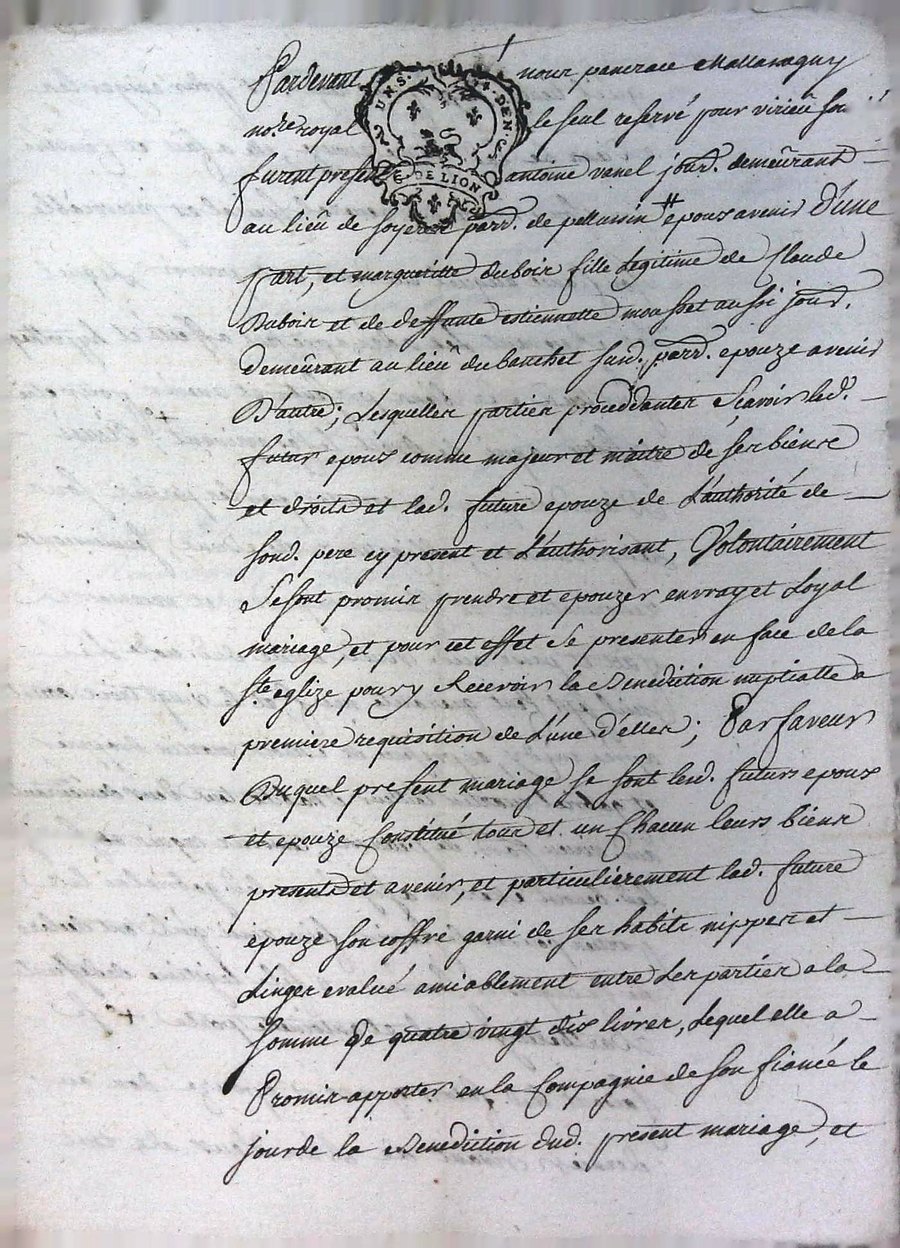 Pardevant nous pancrace Mallassagny
no.re royal le seul reservé pour virieu sou
furent present antoine vanel jour.d demeûrant
au lieû de soyeres parr.d de pellussin # epous avenir D'une
part, et margueritte dubois fille Legitime de Claude
Dubois et de deffunte estiennette mousset aussi jour.d
demeûrant au lieû du banchet susd. parr.d epouze avenir
D'autre; Lesquelles parties procedantes Sçavoir led.
futur epous comme majeur et maitre de ses biens
et droits et lad. future epouze de L'authorité de
sond. pere cy present et L'authorisant, Volontairement
Se sont promis prendre et epouzer en vray et Loyal
mariage, et pour cet effet Se presenter en face de la
s.te eglize pour y Recevoir la Benediction nuptialle a
premiere requisition de L'une d'elles; Par faveur
Duquel present mariage se sont lesd. futurs epous
et epouze Constitué tous et un Chacun leurs biens
presents et avenir, et particulierement lad. future
epouze son coffre garni de ses habits nippes et
Linges evalué amiablement entre Les parties a la
somme de quatre vingt dix livres, Lequel elle a
Promis apporter en la Compagnie de son fiancé le
jour de la Benediction dud. present mariage, et
UN S. 4. D. EN.
G. DE LION